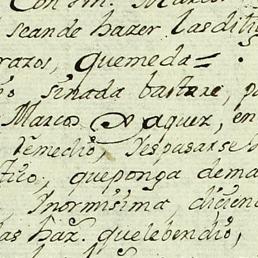 Con
seande hazer las dilig
razos, que meda =
sinada bastare, p
Marcos Vaquez, en
remedio, Despasarse
tiro, que ponga dema
Inormisima, diciend
las haz.s que le bendio,